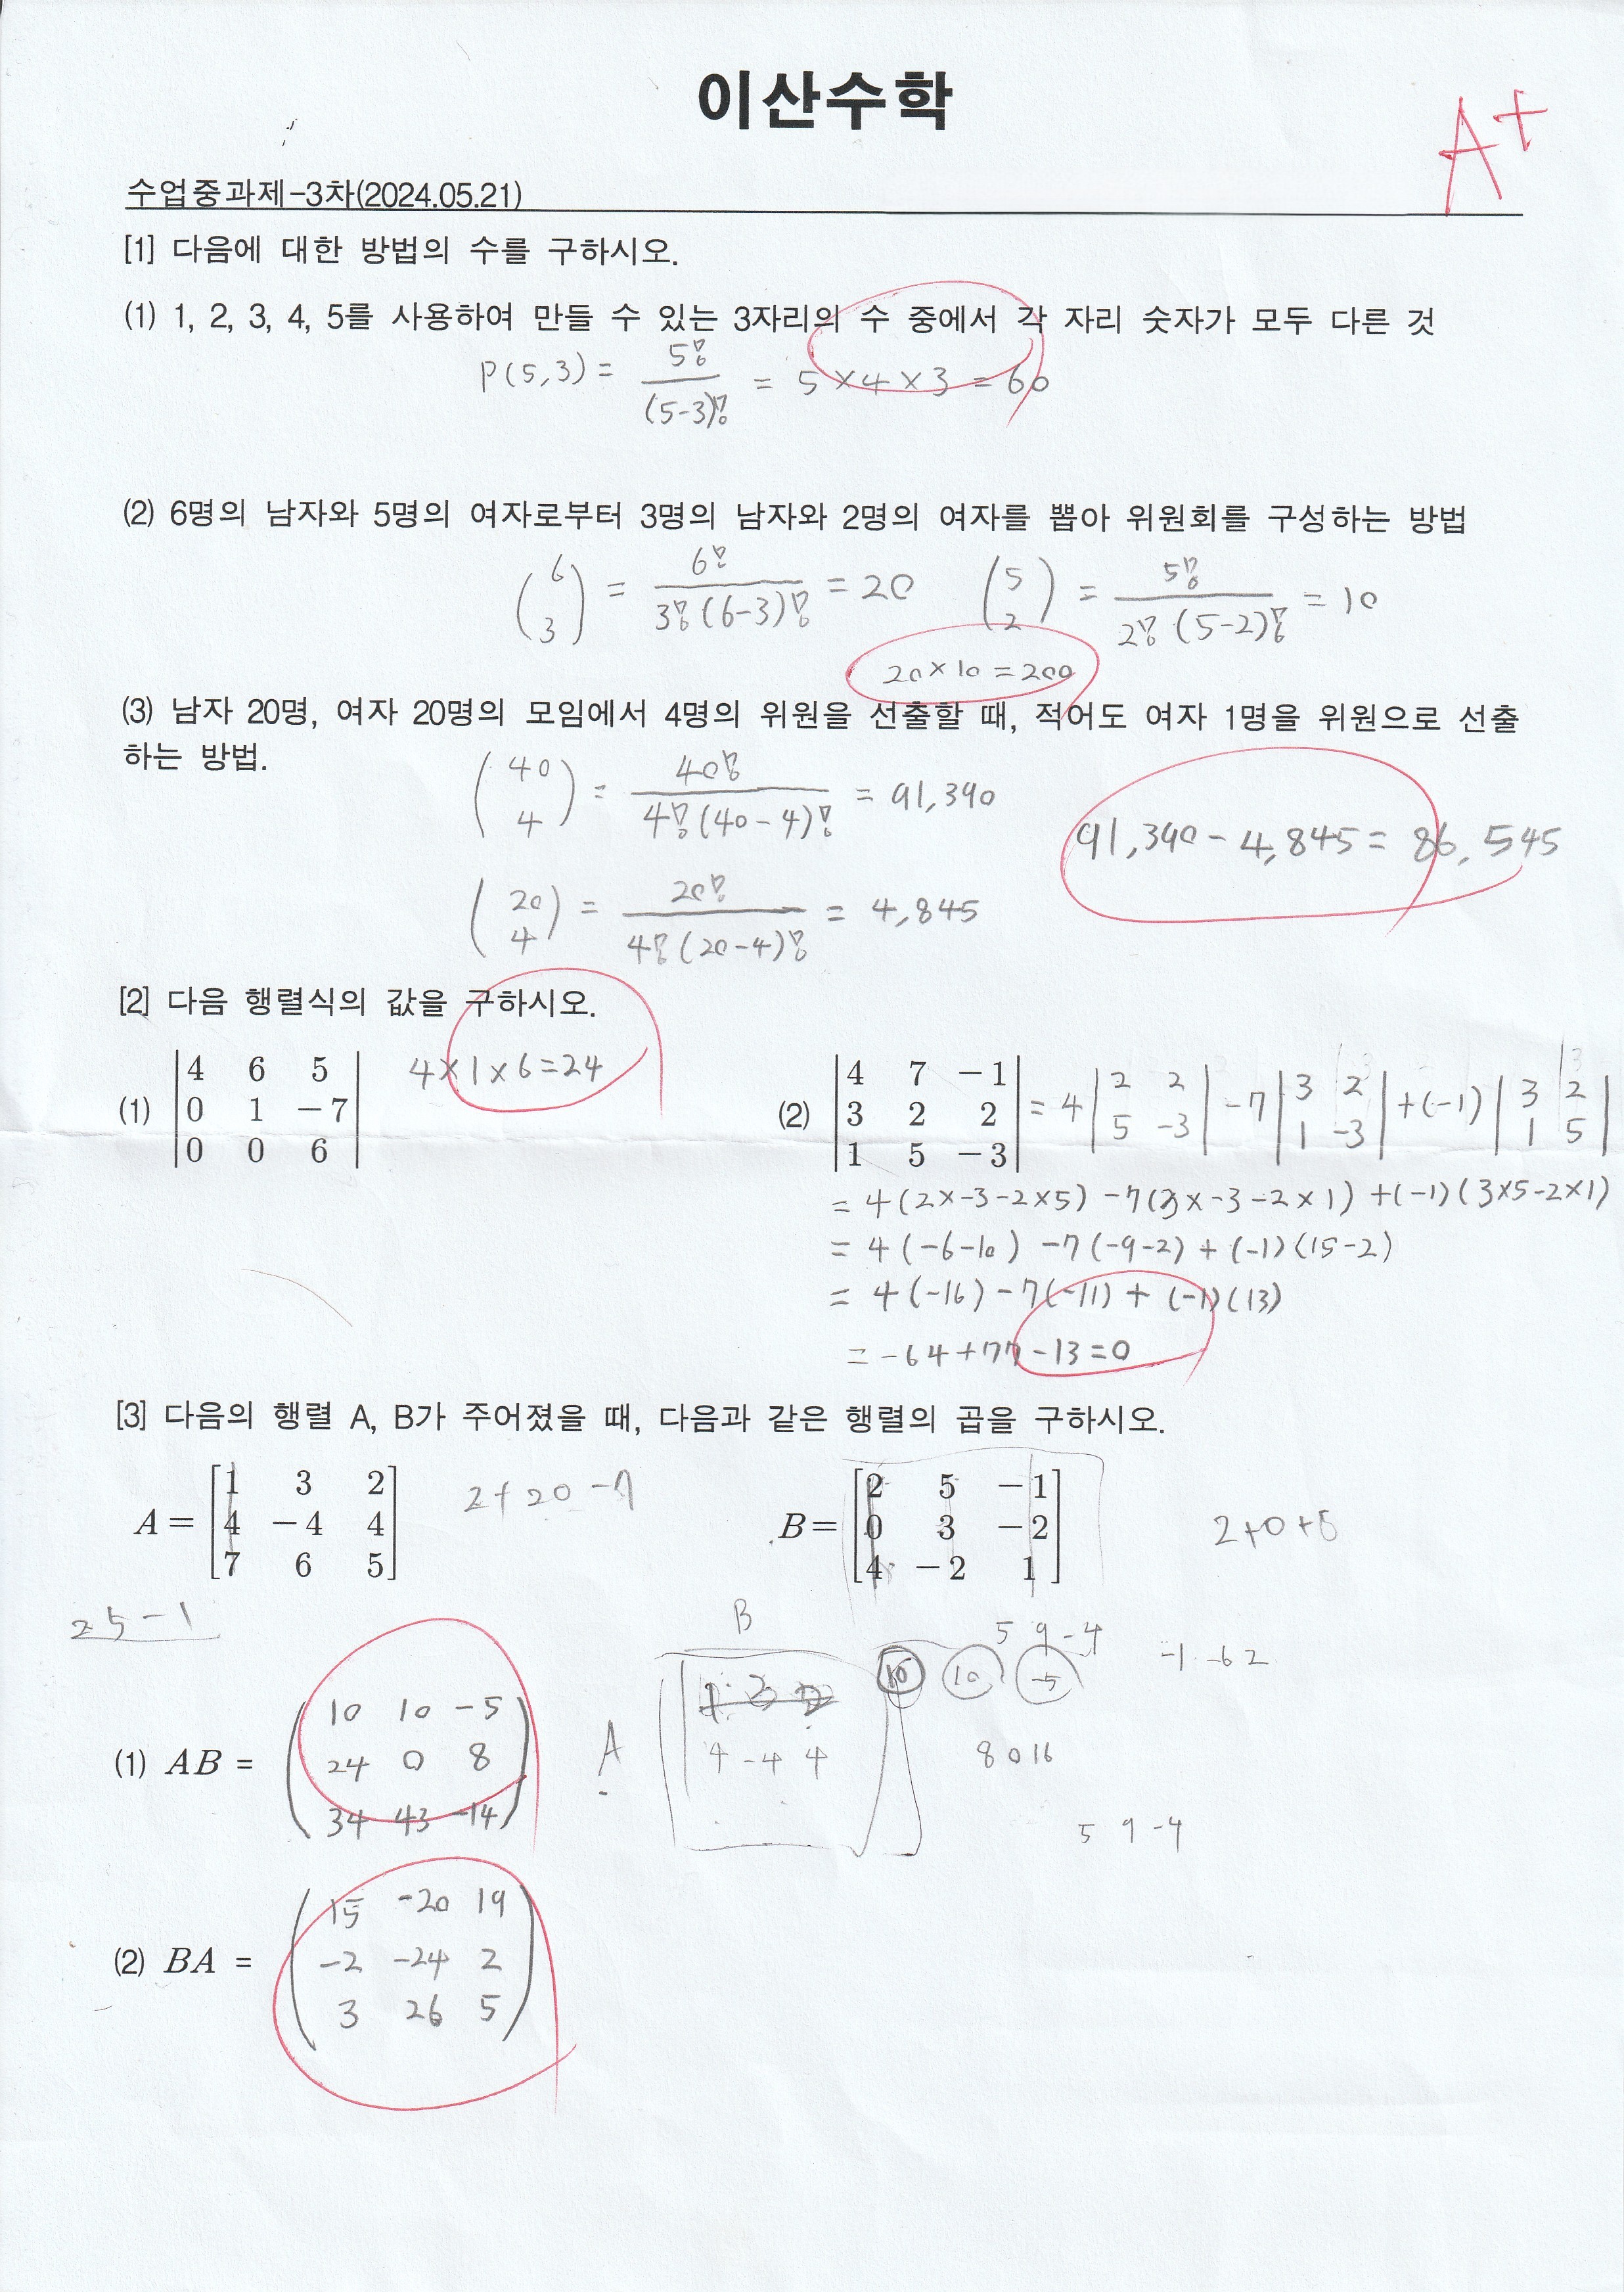 이산수학
A+
수업중과제-3차(2024.05.21)
[1] 다음에 대한 방법의 수를 구하시오.
(1) 1, 2, 3, 4, 5를 사용하여 만들 수 있는 3자리의 수 중에서 각 자리 숫자가 모두 다른 것
P(5,3) = 5! / (5-3)! = 5×4×3 = 60
(2) 6명의 남자와 5명의 여자로부터 3명의 남자와 2명의 여자를 뽑아 위원회를 구성하는 방법
(6 3) = 6! / 3!(6-3)! = 20 (5 2) = 5! / 2!(5-2)! = 10
20×10=200
(3) 남자 20명, 여자 20명의 모임에서 4명의 위원을 선출할 때, 적어도 여자 1명을 위원으로 선출
하는 방법.
(40 4) = 40! / 4!(40-4)! = 91,390
91,390-4,845= 86,545
(20 4) = 20! / 4!(20-4)! = 4,845
[2] 다음 행렬식의 값을 구하시오.
(1) |4 6 5|
|0 1 -7|
|0 0 6|
4×1×6=24
(2) |4 7 -1|
|3 2 2|
|1 5 -3|
= 4 |2 2 5 -3| -7 |3 2 1 -3| +(-1) |3 2 1 5|
= 4(2×-3-2×5) -7(3×-3-2×1) +(-1)(3×5-2×1)
= 4(-6-10) -7(-9-2) + (-1)(15-2)
= 4(-16) -7(-11) + (-1)(13)
= -64+77-13=0
[3] 다음의 행렬 A, B가 주어졌을 때, 다음과 같은 행렬의 곱을 구하시오.
A = [1 3 2]
[4 -4 4]
[7 6 5]
2+20-7
B = [2 5 -1]
[0 3 -2]
[4 -2 1]
2+0+8
2 5 -1
B
5 9 -4
-1 -6 2
10 10 -5
(1) AB =
10 10 -5
24 0 8
34 43 -14
A
4 -4 4
8 0 16
5 9 -4
(2) BA =
15 -20 19
-2 -24 2
3 26 5